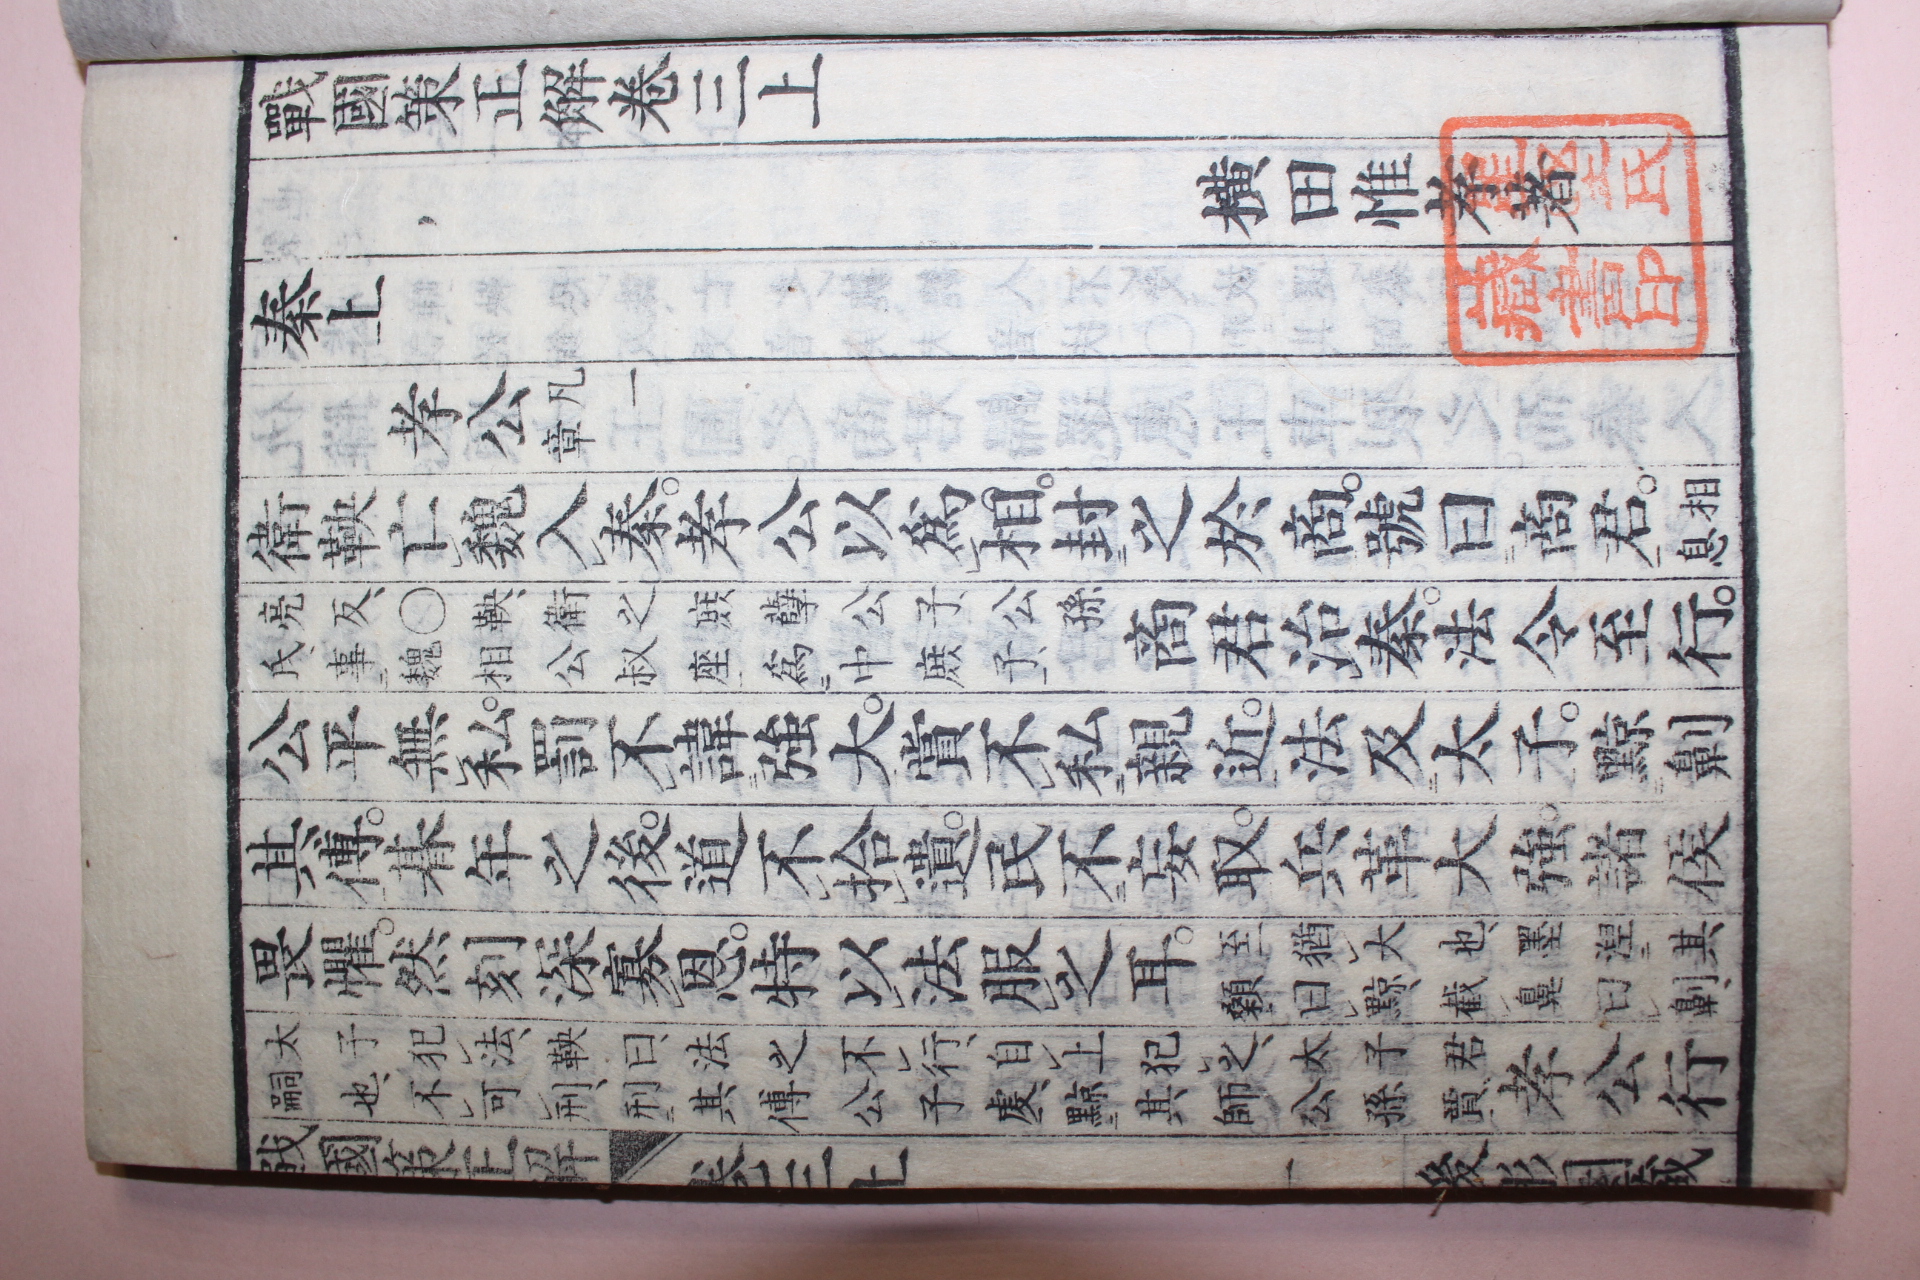 戰國策正解卷三上
橫田惟孝著
藏書印
秦上
孝公凡一章
衛鞅亡魏入秦。孝公以爲相。封之於商。號曰商君。相息
亮反、〇鞅、衛之庶孽公子、公孫氏、事魏相公叔座爲中庶子、商君治秦。法令至行。
公平無私。罰不諱強大。賞不私親近。法及太子。黥劓
其傅。朞年之後。道不拾遺。民不妄取。兵革大強。諸侯
畏懼。然刻深寡恩。特以法服之耳。至猶大也、墨涅其顙曰黥、截鼻曰劓、
太子犯法、鞅曰、法之不行、自上犯之、太子君嗣也、不可刑、刑其傅公子虔、黥其師公孫賈、孝公行
戰國策正解 卷三上 一 後彫園藏